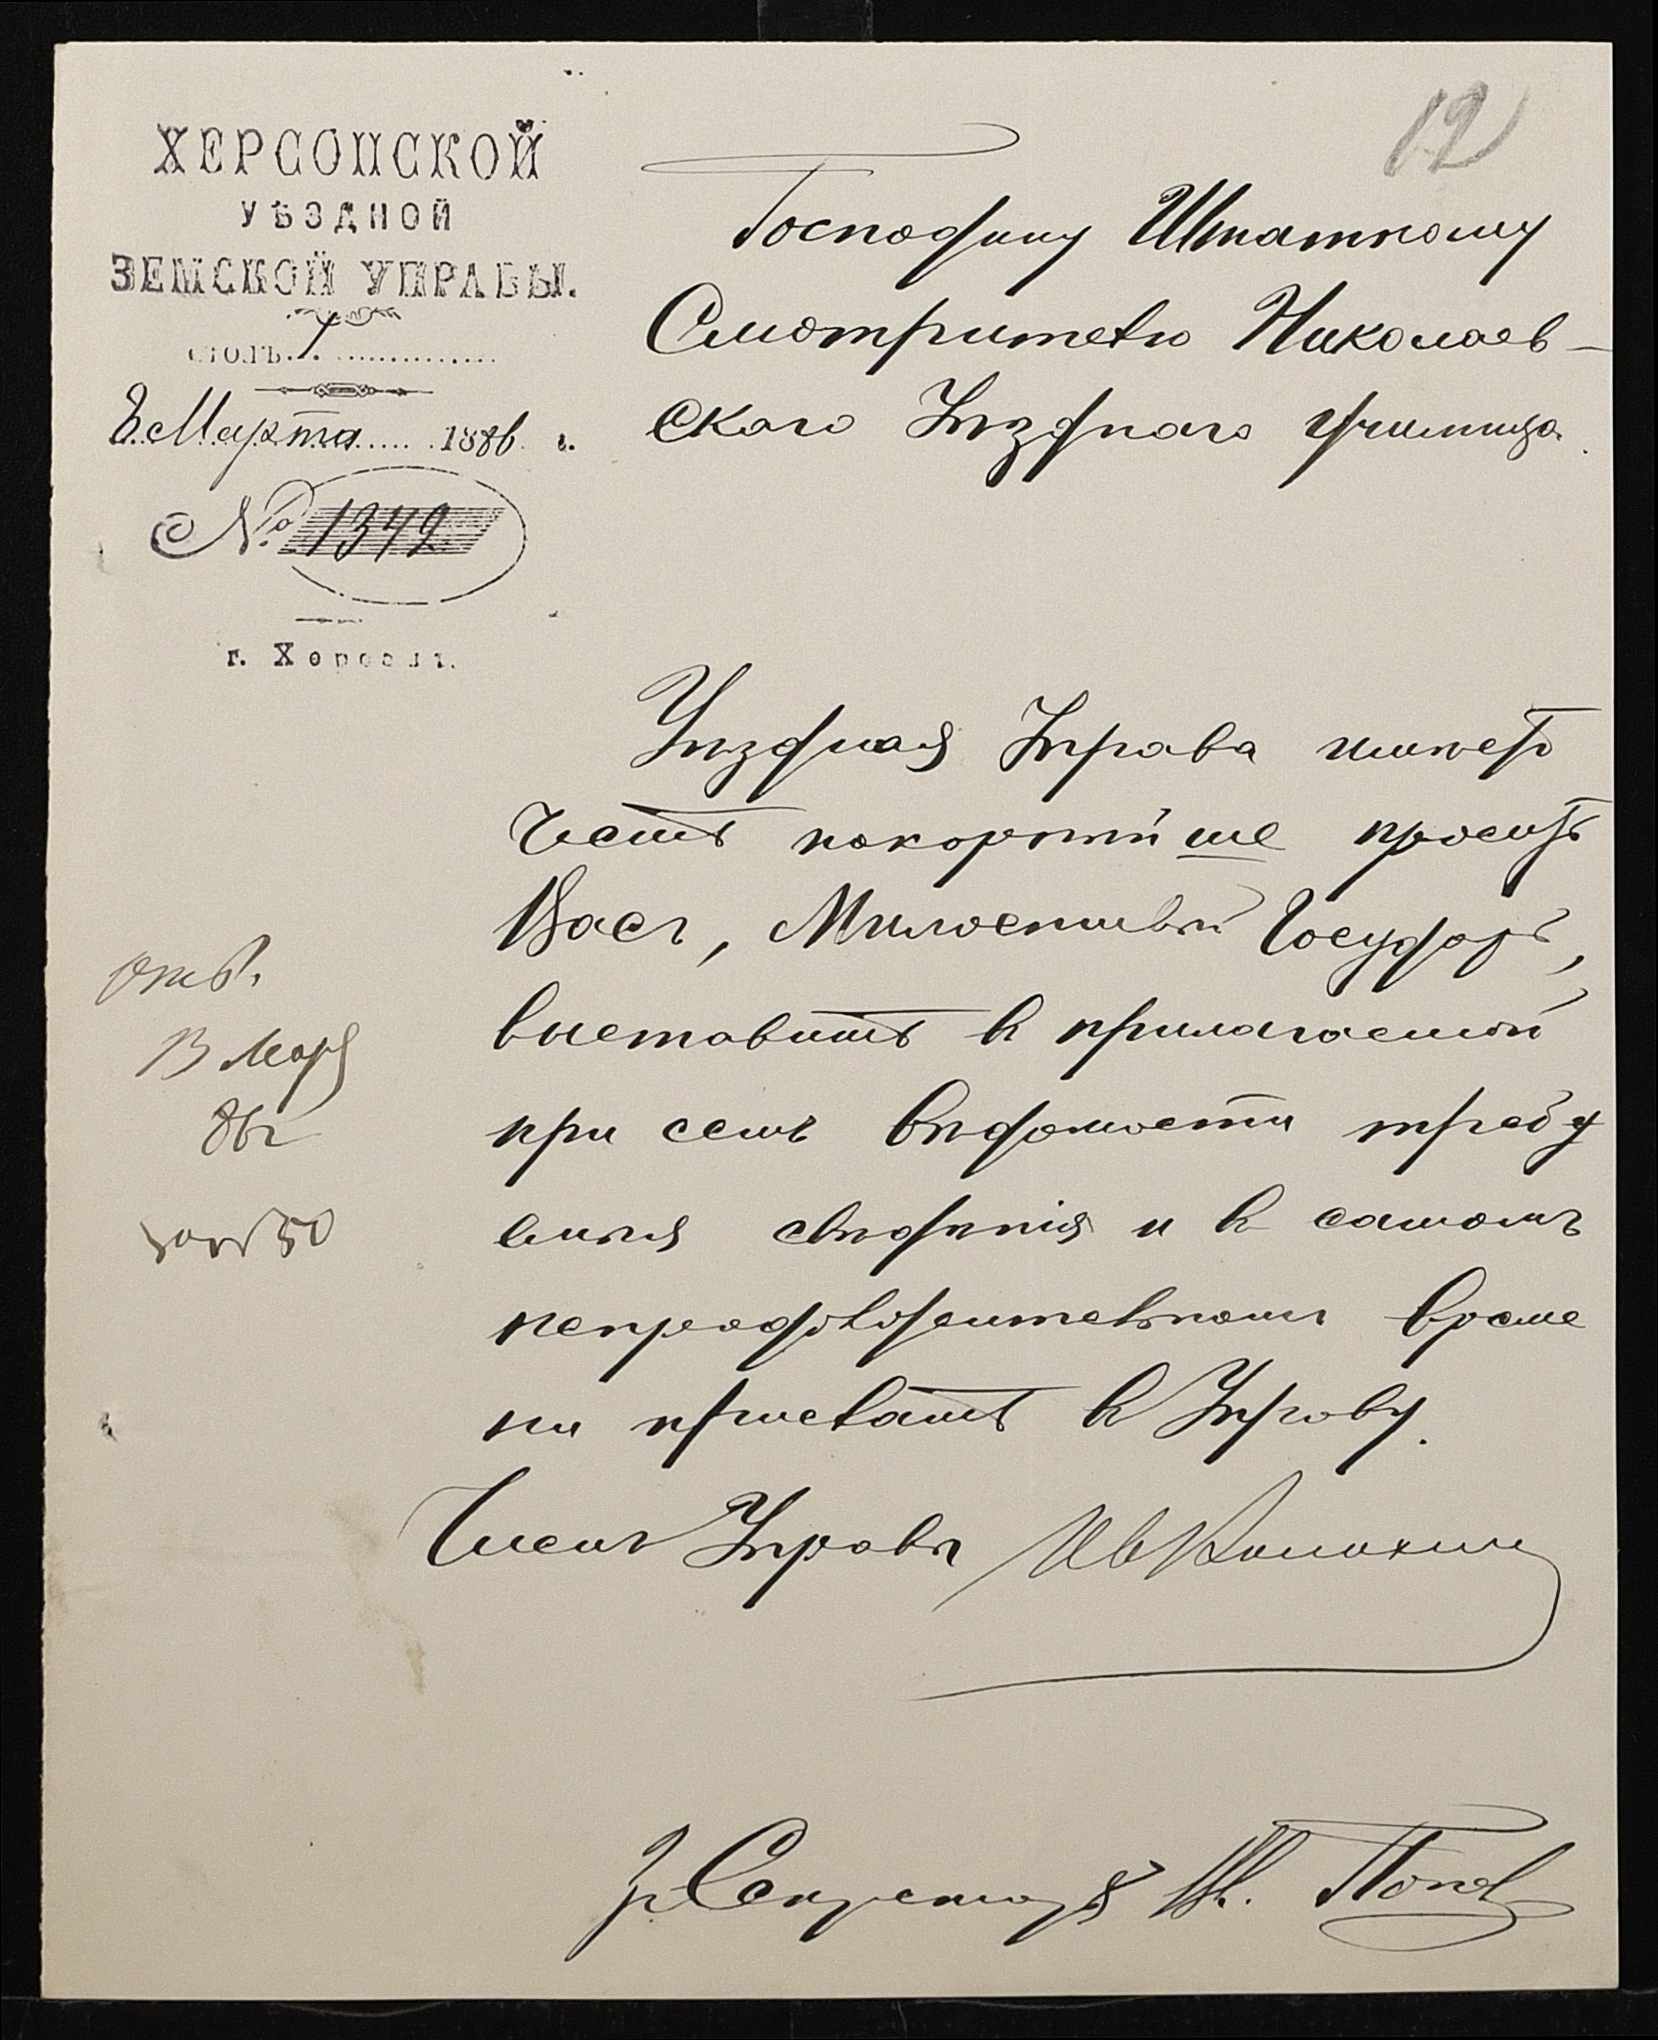 12
ХЕРСОНСКОЙ
УѢЗДНОЙ
ЗЕМСКОЙ УПРАВЫ.
столъ 1
8 Марта 1886 г.
№ 1342
г. Херсонъ.
Господину Штатному
Смотрителю Николаев-
скаго Уѣзднаго Училища.
Уѣздная Управа имѣетъ
честь покорнѣйше просить
Васъ, Милостивый Государь,
выставить въ прилагаемой
при семъ вѣдомости требу
емыя свѣдѣнія и въ самомъ
непродолжительномъ време
ни прислать въ Управу.
Членъ Управы Ив
Секретарь Попов
отв.
13 Мар
86 г
50